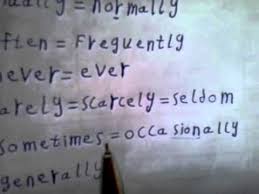 ually = normally
ften = Frequently
never = ever
arely = scarcely = seldom
sometimes = occasionally
generally